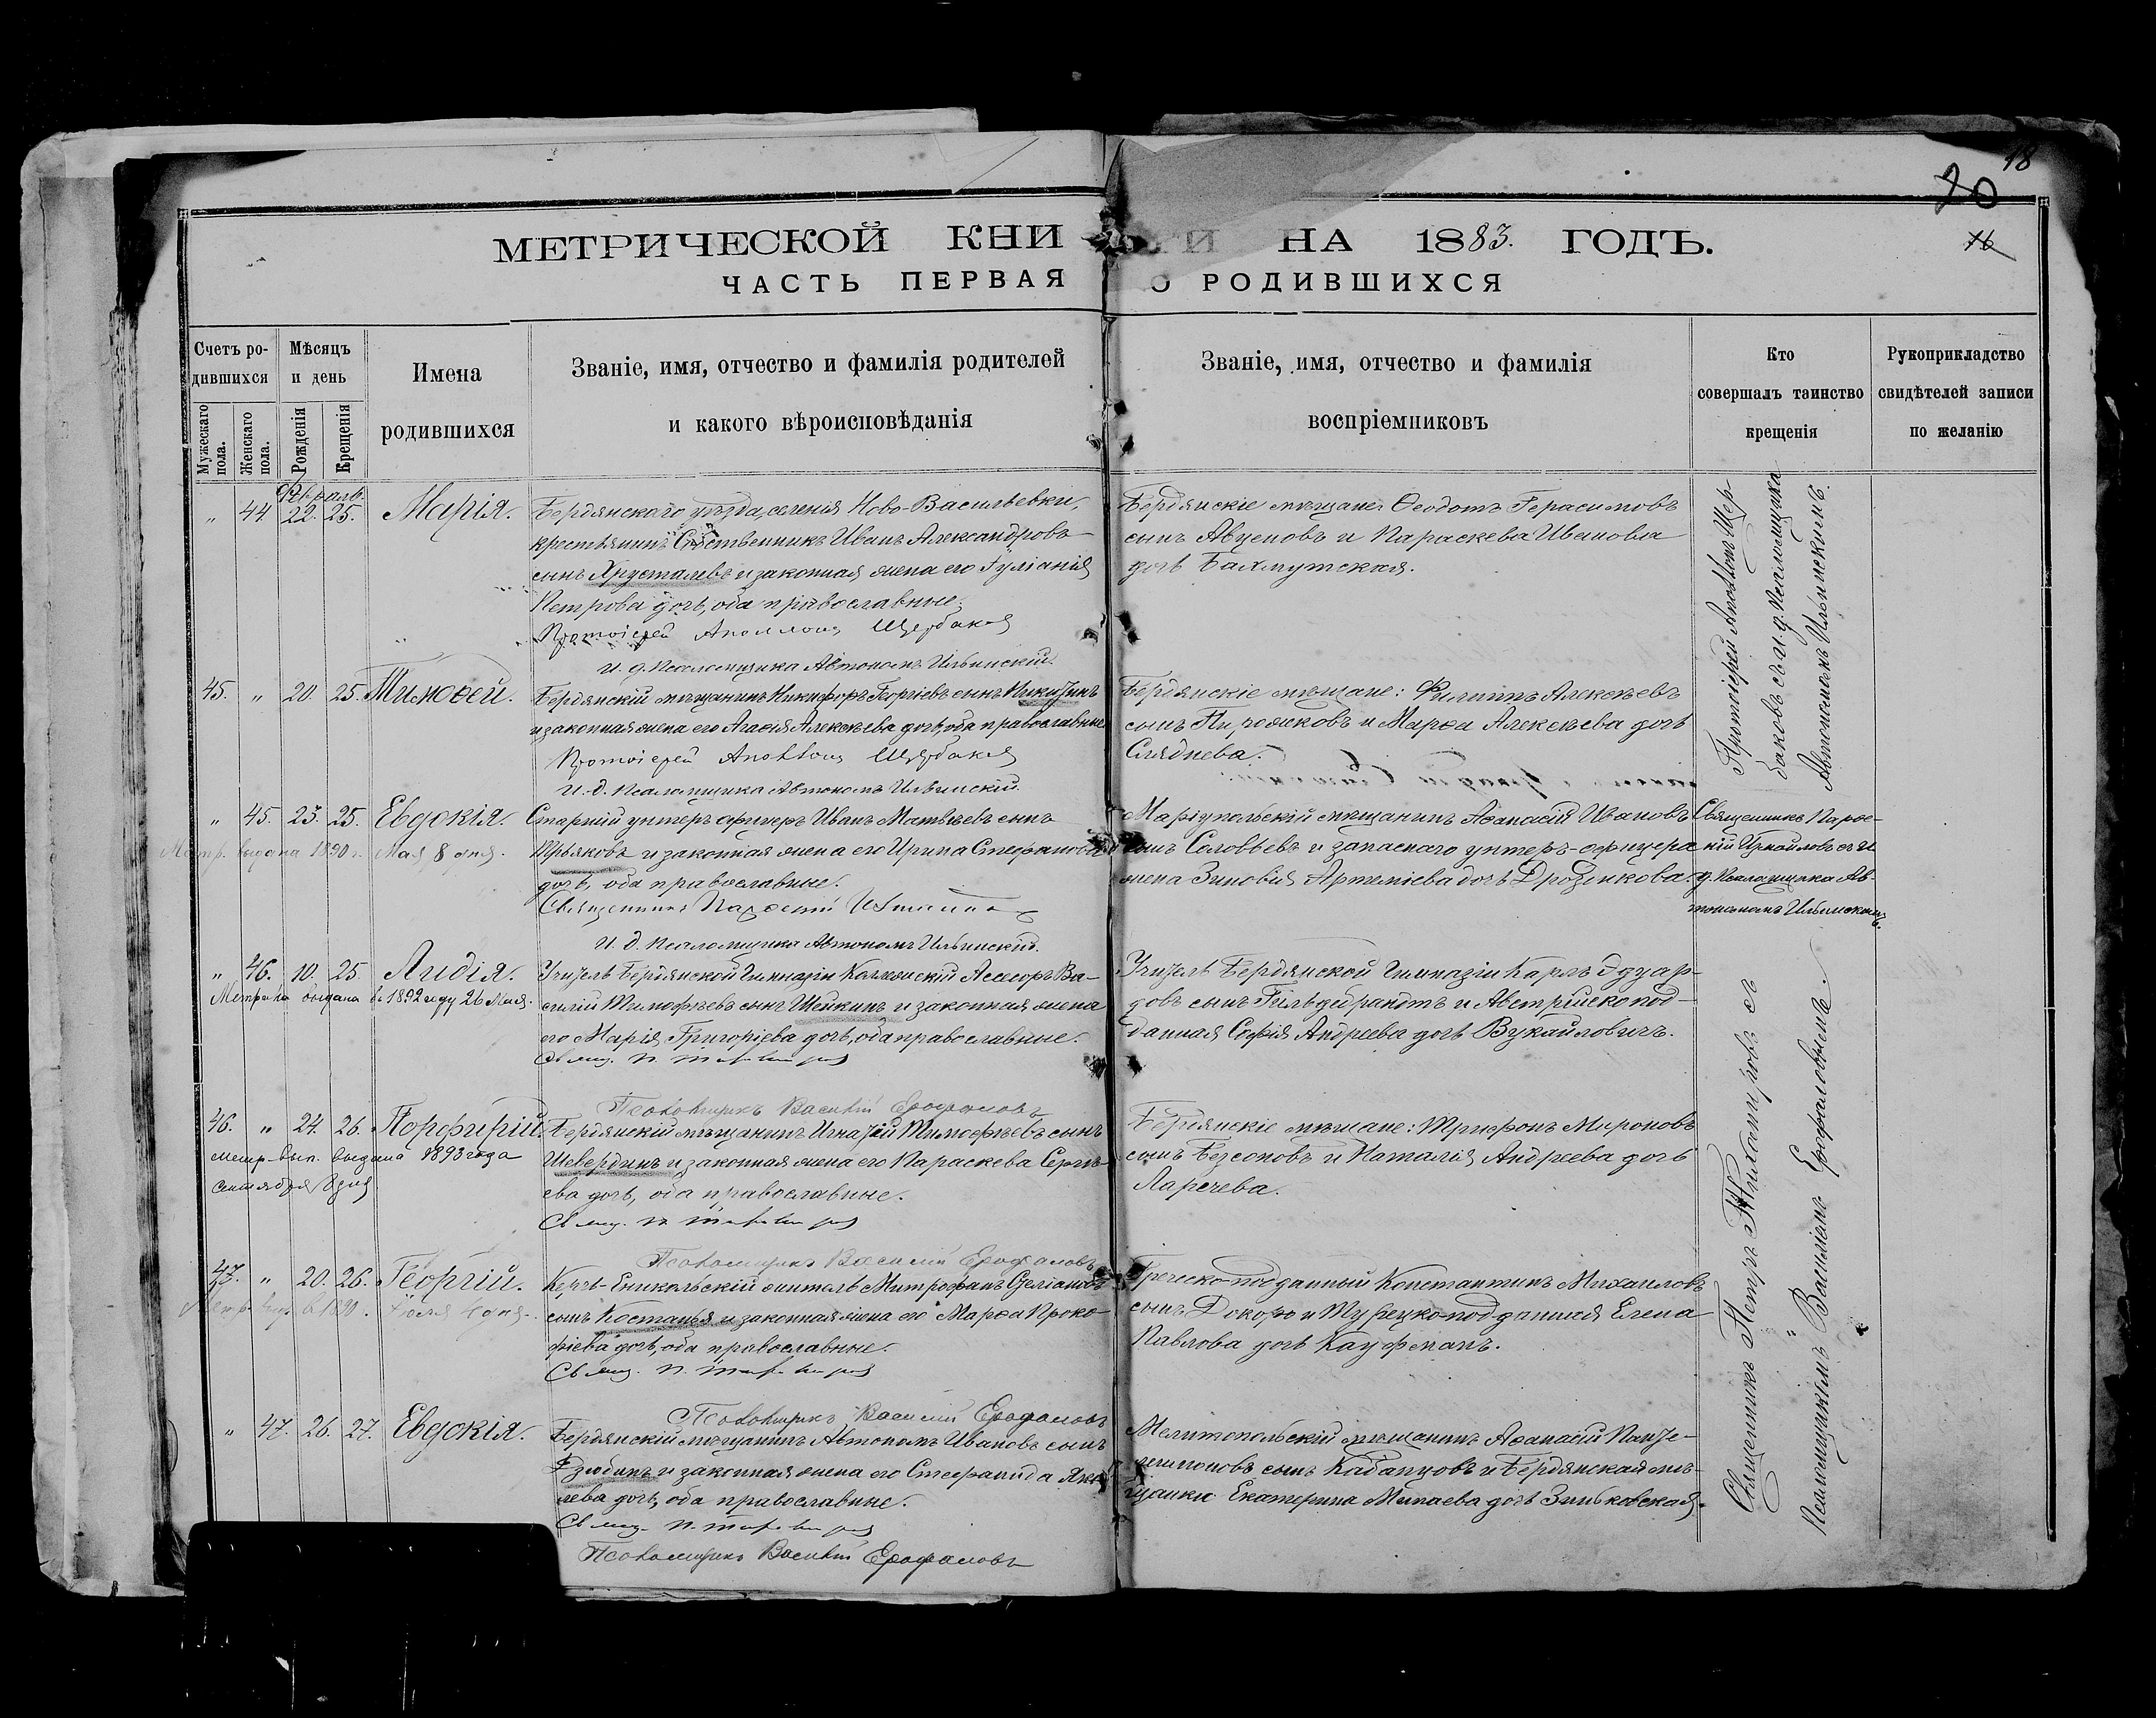 18
20
16
МЕТРИЧЕСКОЙ КНИГИ НА 1883. ГОДЪ.
ЧАСТЬ ПЕРВАЯ О РОДИВШИХСЯ
Счетъ родившихся
Мужескаго пола.
Женскаго пола.
Мѣсяцъ и день
Рожденія
Крещенія
Имена родившихся
Званіе, имя, отчество и фамилія родителей
и какого вѣроисповѣданія
Званіе, имя, отчество и фамилія
воспріемниковъ
Кто
совершалъ таинство
крещенія
Рукоприкладство
свидѣтелей записи
по желанію
Февраль.
„ 44 22. 25. Марія.
Бердянскаго уѣзда, селенія Ново-Васильевки,
крестьянинъ Собственникъ Иванъ Александровъ
сынъ Хрусталевъ и законная жена его Іуліанія
Петрова дочь, оба православные.
Протоіерей Аполлонъ Щербаковъ
И. д. Псаломщика Автономъ Ильинскій.
Бердянскіе мѣщане: Ѳеодотъ Герасимовъ
сынъ и Параскева Иванова
дочь Бахмутская.
Протоіерей Аполлонъ Щер-
баковъ съ и. д. Псаломщика
Автономомъ Ильинскимъ.
45. „ 20. 25. Тимоѳей.
Бердянскій мѣщанинъ Никифоръ Георгіевъ сынъ Никитинъ
и законная жена его Агаѳія Алексѣева дочь, оба православные
Протоіерей Аполлонъ Щербаковъ
И. д. Псаломщика Автономъ Ильинскій.
Бердянскіе мѣщане: Филиппъ Алексѣевъ
сынъ Пирожковъ и Марѳа Алексѣева дочь
Сляднева.
„ 45. 23. 25. Евдокія.
Метр. выдана 1890 г. Мая 8 дня.
Старшій унтеръ офицеръ Иванъ Матвѣевъ сынъ
Трѣяковъ и законная жена его Ирина Стефанова
дочь, оба православные.
Священникъ Парѳеній Измаиловъ
И. д. Псаломщика Автономъ Ильинскій.
Маріупольскій мѣщанинъ Аѳанасій Ивановъ
сынъ Соловьевъ и запаснаго унтеръ-офицера
жена Зиновія Артеміева дочь Дроздикова.
Священникъ Парѳе-
ній Измаиловъ съ и.
д. Псаломщика Ав-
тономомъ Ильинскимъ.
„ 46. 10. 25. Лидія.
Метрика выдана въ 1892 году 26 Мая.
Учитель Бердянской Гимназіи Коллежскій Ассесоръ Ва-
силій Тимофѣевъ сынъ Шейкинъ и законная жена
его Марія Григоріева дочь, оба православные.
Учитель Бердянской Гимназіи Карлъ Эдуар-
довъ сынъ Гильдебрандтъ и Австрійскопод-
данная Софія Андреева дочь Вукаиловичъ.
Псаломщикъ Василій Ерофаловъ
46. „ 24. 26. Порфирій.
метр. вып. выдана 1893 года
Сентября дня
Бердянскій мѣщанинъ Игнатій Тимофѣевъ сынъ
Шевердинъ и законная жена его Параскева Сергѣ-
ева дочь, оба православные.
Бердянскіе мѣщане: Трифонъ Мироновъ
сынъ Безсоновъ и Наталія Андреева дочь
Ларечева.
Псаломщикъ Василій Ерофаловъ
47. „ 20. 26. Георгій.
Керчь-Еникольскій житель Митрофанъ
сынъ Костанья и законная жена его Марѳа Проко-
фіева дочь, оба православные.
Греческо-подданный Константинъ Михаиловъ
сынъ Докоро и Турецко-подданная Елена
Павлова дочь Кауфманъ.
Псаломщикъ Василій Ерофаловъ
„ 47. 26. 27. Евдокія.
Бердянскій мѣщанинъ Автономъ Ивановъ сынъ
Дзюбинъ и законная жена его Стефанида Яков-
лева дочь, оба православные.
Псаломщикъ Василій Ерофаловъ
Мелитопольскій мѣщанинъ Аѳанасій Панте-
леимоновъ сынъ Кабанцовъ и Бердянская мѣ-
щанка Екатерина Минаева дочь Зиньковская.
Священникъ Петръ Тихомировъ съ
Псаломщикомъ Василіемъ Ерофаловымъ.